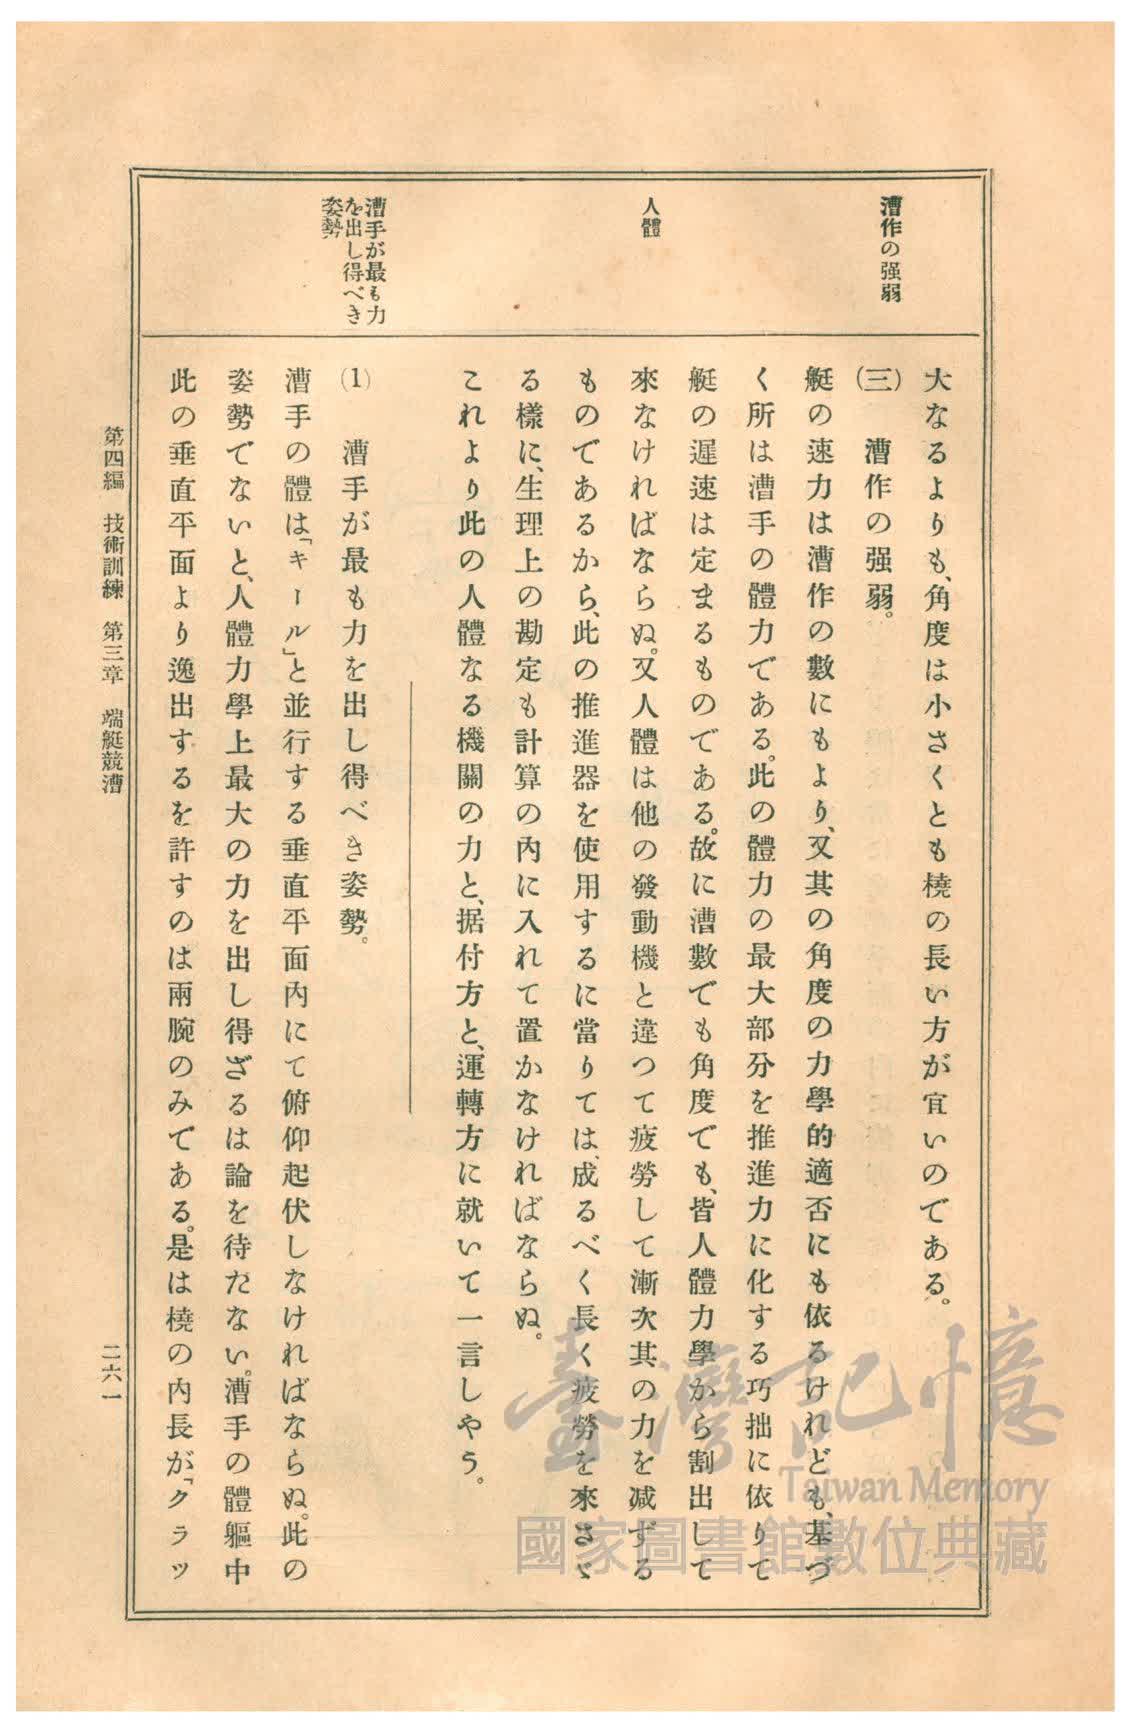 漕作の强弱
人體
漕手が最も力
を出し得べき
姿勢
大なるよりも、角度は小さくとも橈の長い方が宜いのである。
(三)　漕作の强弱。
艇の速力は漕作の數にもより、又其の角度の力學的適否にも依るけれども、基づ
く所は漕手の體力である。此の體力の最大部分を推進力に化する巧拙に依りて
艇の遲速は定まるものである。故に漕數でも角度でも、皆人體力學から割出して
來なければならぬ。又人體は他の發動機と違つて疲勞して漸次其の力を減ずる
ものであるから、此の推進器を使用するに當りては、成るべく長く疲勞を來さゞ
る樣に、生理上の勘定も計算の內に入れて置かなければならぬ。
これより此の人體なる機關の力と、据付方と、運轉方に就いて一言しやう。
(1)　漕手が最も力を出し得べき姿勢。
漕手の體は「キール」と並行する垂直平面內にて俯仰起伏しなければならぬ。此の
姿勢でないと、人體力學上最大の力を出し得ざるは論を待たない。漕手の體軀中
此の垂直平面より逸出するを許すのは兩腕のみである。是は橈の内長が「クラツ
第四編　技術訓練　第三章　端艇競漕
二六一
臺灣記憶
Taiwan Memory
國家圖書館數位典藏